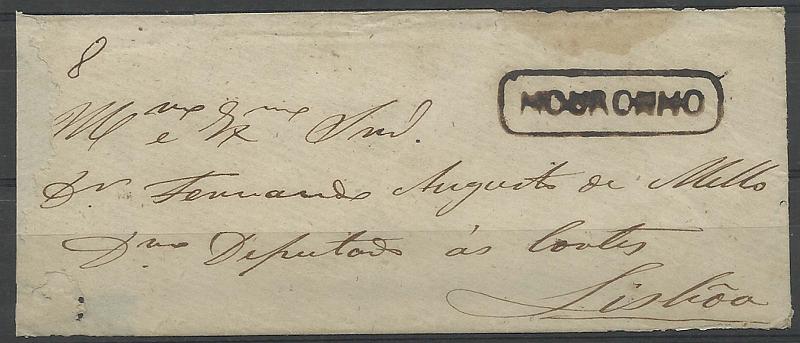 8
MOURONHO
M.mo e Ex.mo Snr.
Dr. Fernando Augusto de Mello
D.mo Deputado ás Cortes
Lisbôa